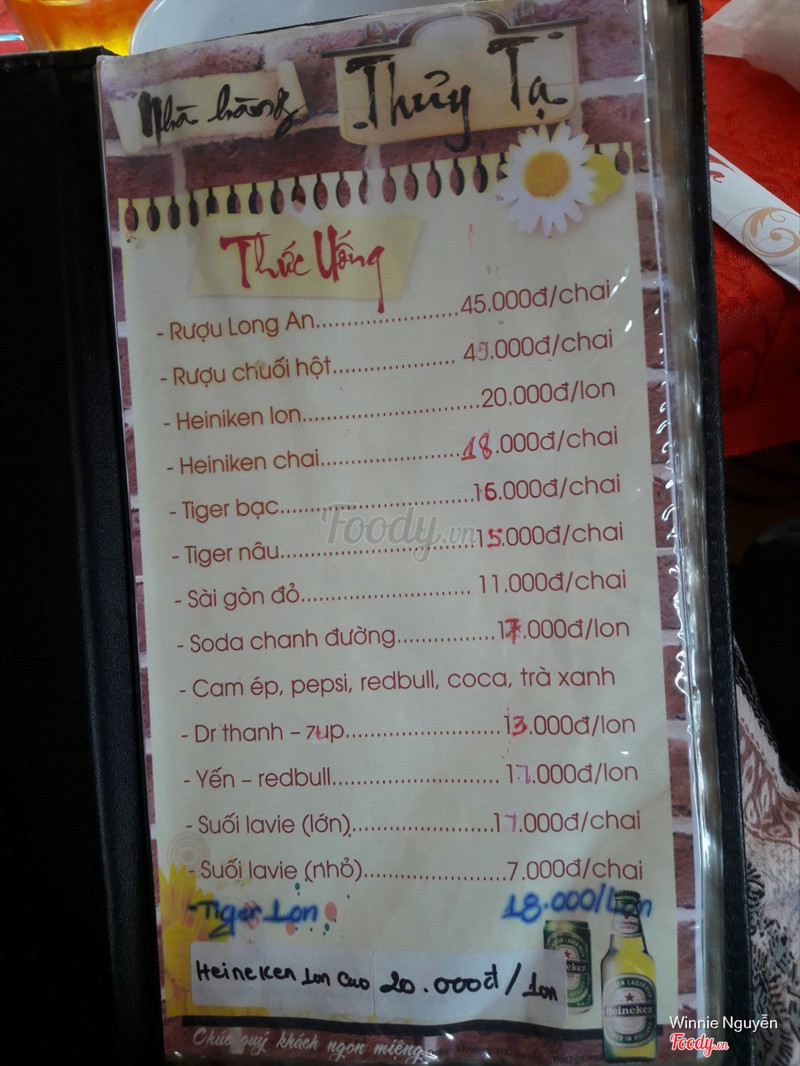 Nhà hàng Thủy Tạ
Thức Uống
- Rượu Long An......................45.000đ/chai
- Rượu chuối hột................... 45.000đ/chai
- Heiniken lon...........................20.000đ/lon
- Heiniken chai......................18.000đ/chai
- Tiger bạc.............................16.000đ/chai
- Tiger nâu.............................15.000đ/chai
- Sài gòn đỏ.......................... 11.000đ/chai
- Soda chanh đường...............17.000đ/lon
- Cam ép, pepsi, redbull, coca, trà xanh
- Dr thanh – 7up.......................13.000đ/lon
- Yến – redbull......................... 17.000đ/lon
- Suối lavie (lớn)......................17.000đ/chai
- Suối lavie (nhỏ)......................7.000đ/chai
-Tiger Lon 18.000/Lon
Heineken Lon Cao 20.000đ/Lon
Chúc quý khách ngon miệng...
Heineken
Foody.vn
Winnie Nguyễn
Foody.vn